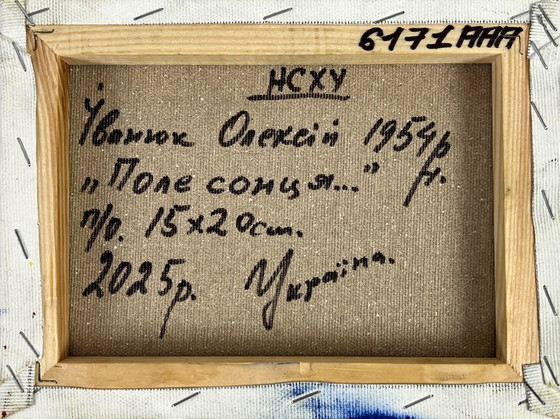 6171AAA
НСХУ
Іванюк Олексій 1954р
н.
„Поле сонця..."
п/о. 15х20см.
2025р. Україна.